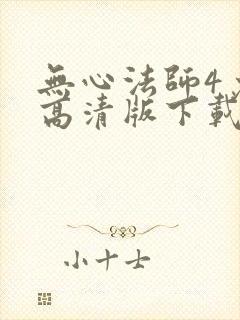 無心法師4
高清版下載
小十士